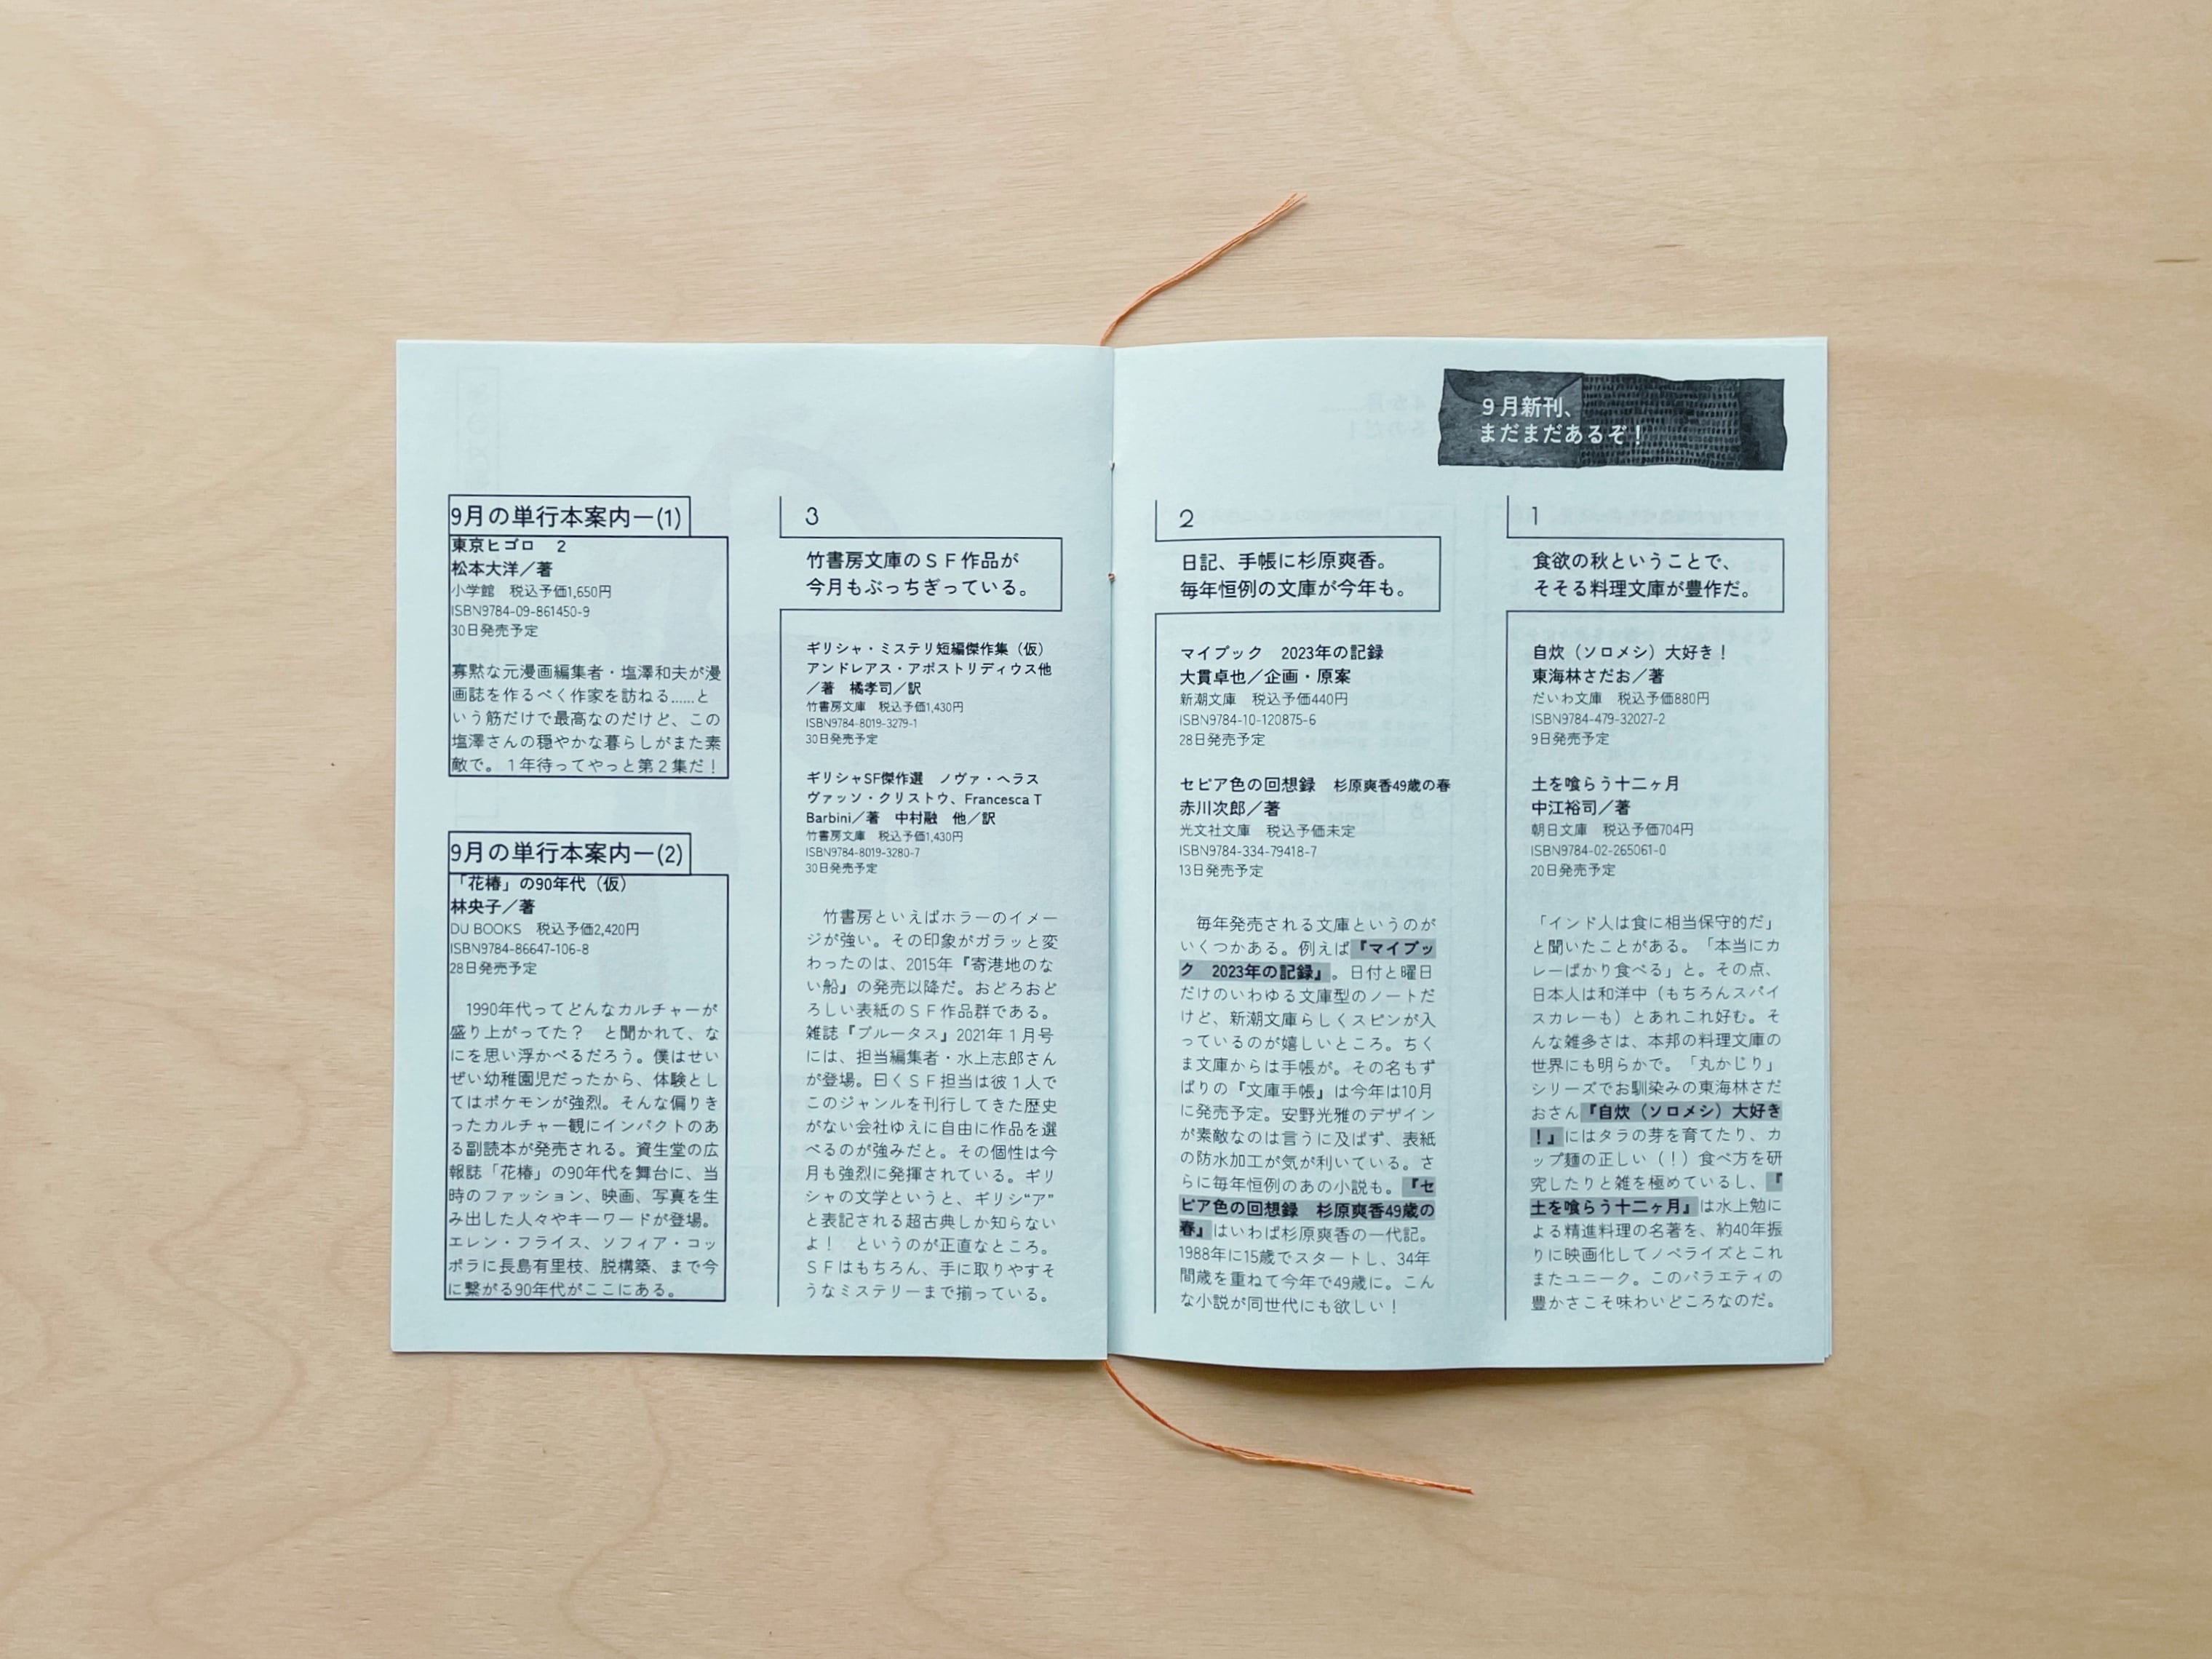 9月新刊、
まだまだあるぞ！
1
食欲の秋ということで、
そそる料理文庫が豊作だ。
自炊（ソロメシ）大好き！
東海林さだお／著
だいわ文庫　税込予価880円
ISBN9784-479-32027-2
9日発売予定
土を喰らう十二ヶ月
中江裕司／著
朝日文庫　税込予価704円
ISBN9784-02-265061-0
20日発売予定
「インド人は食に相当保守的だ」
と聞いたことがある。「本当にカ
レーばかり食べる」と。その点、
日本人は和洋中（もちろんスパイ
スカレーも）とあれこれ好む。そ
んな雑多さは、本邦の料理文庫の
世界にも明らかで。「丸かじり」
シリーズでお馴染みの東海林さだ
おさん『自炊（ソロメシ）大好き
！』にはタラの芽を育てたり、カ
ップ麺の正しい（！）食べ方を研
究したりと雑を極めているし、『
土を喰らう十二ヶ月』は水上勉に
よる精進料理の名著を、約40年振
りに映画化してノベライズとこれ
またユニーク。このバラエティの
豊かさこそ味わいどころなのだ。
2
日記、手帳に杉原爽香。
毎年恒例の文庫が今年も。
マイブック　2023年の記録
大貫卓也／企画・原案
新潮文庫　税込予価440円
ISBN9784-10-120875-6
28日発売予定
セピア色の回想録　杉原爽香49歳の春
赤川次郎／著
光文社文庫　税込予価未定
ISBN9784-334-79418-7
13日発売予定
毎年発売される文庫というのが
いくつかある。例えば『マイブッ
ク　2023年の記録』。日付と曜日
だけのいわゆる文庫型のノートだ
けど、新潮文庫らしくスピンが入
っているのが嬉しいところ。ちく
ま文庫からは手帳が。その名もず
ばりの『文庫手帳』は今年は10月
に発売予定。安野光雅のデザイン
が素敵なのは言うに及ばず、表紙
の防水加工が気が利いている。さ
らに毎年恒例のあの小説も。『セ
ピア色の回想録　杉原爽香49歳の
春』はいわば杉原爽香の一代記。
1988年に15歳でスタートし、34年
間歳を重ねて今年で49歳に。こん
な小説が同世代にも欲しい！
3
竹書房文庫のＳＦ作品が
今月もぶっちぎっている。
ギリシャ・ミステリ短編傑作集（仮）
アンドレアス・アポストリディウス他
／著　橘孝司／訳
竹書房文庫　税込予価1,430円
ISBN9784-8019-3279-1
30日発売予定
ギリシャSF傑作選　ノヴァ・ヘラス
ヴァッソ・クリストウ、Francesca T
Barbini／著　中村融　他／訳
竹書房文庫　税込予価1,430円
ISBN9784-8019-3280-7
30日発売予定
竹書房といえばホラーのイメー
ジが強い。その印象がガラッと変
わったのは、2015年『寄港地のな
い船』の発売以降だ。おどろおど
ろしい表紙のＳＦ作品群である。
雑誌『ブルータス』2021年１月号
には、担当編集者・水上志郎さん
が登場。曰くＳＦ担当は彼１人で
このジャンルを刊行してきた歴史
がない会社ゆえに自由に作品を選
べるのが強みだと。その個性は今
月も強烈に発揮されている。ギリ
シャの文学というと、ギリシ“ア”
と表記される超古典しか知らない
よ！　というのが正直なところ。
ＳＦはもちろん、手に取りやすそ
うなミステリーまで揃っている。
9月の単行本案内ー(1)
東京ヒゴロ　2
松本大洋／著
小学館　税込予価1,650円
ISBN9784-09-861450-9
30日発売予定
寡黙な元漫画編集者・塩澤和夫が漫
画誌を作るべく作家を訪ねる……と
いう筋だけで最高なのだけど、この
塩澤さんの穏やかな暮らしがまた素
敵で。１年待ってやっと第２集だ！
9月の単行本案内ー(2)
「花椿」の90年代（仮）
林央子／著
DU BOOKS　税込予価2,420円
ISBN9784-86647-106-8
28日発売予定
1990年代ってどんなカルチャーが
盛り上がってた？　と聞かれて、な
にを思い浮かべるだろう。僕はせい
ぜい幼稚園児だったから、体験とし
てはポケモンが強烈。そんな偏りき
ったカルチャー観にインパクトのあ
る副読本が発売される。資生堂の広
報誌「花椿」の90年代を舞台に、当
時のファッション、映画、写真を生
み出した人々やキーワードが登場。
エレン・フライス、ソフィア・コッ
ポラに長島有里枝、脱構築、まで今
に繋がる90年代がここにある。